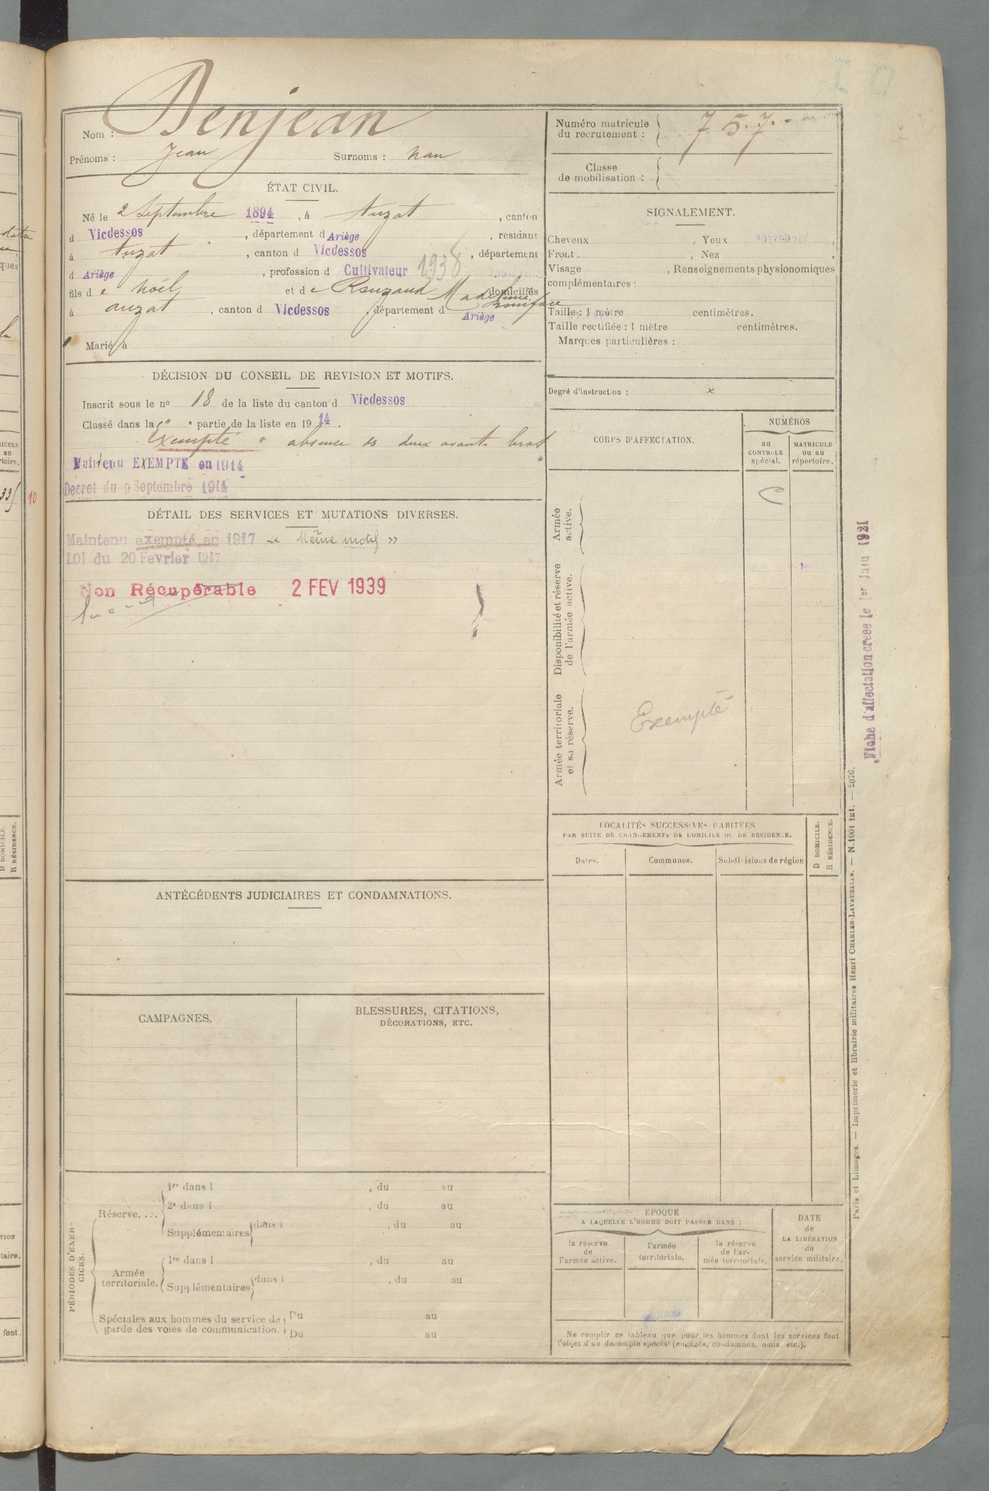 Nom : Benjean
Prénoms : Jean Surnoms : nau
ÉTAT CIVIL.
Né le 2 Septembre 1894, à Auzat, canton
d Vicdessos, département d Ariège, résidant
à Auzat, canton d Vicdessos, département
d Ariège, profession d Cultivateur 1938
fils de Noël et de Rouzaud Madeleine Boniface domiciliés
à auzat, canton d Vicdessos, département d Ariège
Marié à
DÉCISION DU CONSEIL DE REVISION ET MOTIFS.
Inscrit sous le no 18 de la liste du canton d Vicdessos
Classé dans la e partie de la liste en 1914.
Exempté absence des deux avants bras
Maintenu EXEMPTE en 1914
Décret du 9 Septembre 1914
DÉTAIL DES SERVICES ET MUTATIONS DIVERSES.
Maintenu exempté en 1917 « Même motif »
LOI du 20 Février 1917
Non Récupérable 2 FEV 1939
ANTÉCÉDENTS JUDICIAIRES ET CONDAMNATIONS.
CAMPAGNES.
BLESSURES, CITATIONS,
DÉCORATIONS, ETC.
PÉRIODES D'EXERCICES.
Réserve....
1re dans l , du au
2e dans l , du au
Supplémentaires dans l , du au
Armée
territoriale.
1re dans l , du au
Supplémentaires dans l , du au
Spéciales aux hommes du service de Du au
garde des voies de communication. Du au
Numéro matricule
du recrutement : 757
Classe
de mobilisation :
SIGNALEMENT.
Cheveux , Yeux ,
Front , Nez ,
Visage , Renseignements physionomiques
complémentaires :
Taille : 1 mètre centimètres.
Taille rectifiée : 1 mètre centimètres.
Marques particulières :
Degré d'instruction : x
CORPS D'AFFECTATION.
NUMÉROS
AU
CONTROLE
spécial.
MATRICULE
OU AU
répertoire.
Armée
active.
C
Disponibilité et réserve
de l'armée active.
Armée territoriale
et sa réserve.
Exempté
LOCALITÉS SUCCESSIVES HABITÉES
PAR SUITE DE CHANGEMENTS DE DOMICILE OU DE RÉSIDENCE.
Dates.
Communes.
Subdivisions de région
D DOMICILE.
R RÉSIDENCE.
ÉPOQUE
A LAQUELLE L'HOMME DOIT PASSER DANS :
la réserve
de
l'armée active.
l'armée
territoriale.
la réserve
de l'ar-
mée territoriale.
DATE
de
LA LIBÉRATION
du
service militaire.
Ne remplir ce tableau que pour les hommes dont les services font
l'objet d'un décompte spécial (engagés, condamnés, omis, etc.).
Fiche d'affectation créée le 1er Juin 1921
Paris et Limoges. — Imprimerie et librairie militaires Henri CHARLES-LAVAUZELLE. — N. 1001 int. —
10